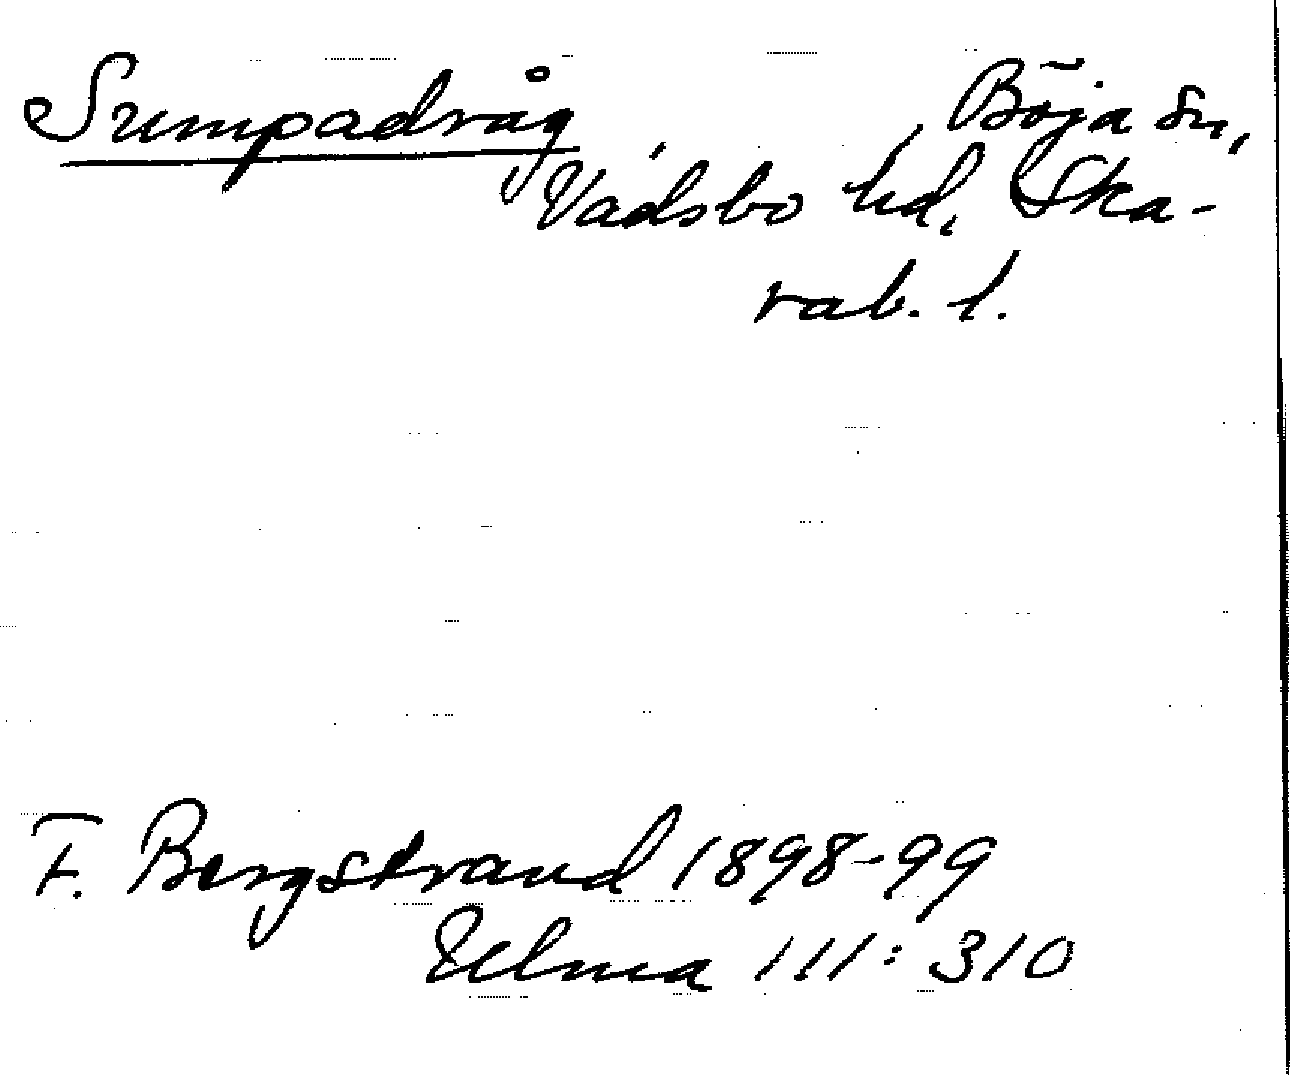 Sumpadråg Böja sn,
Vadsbo hd, Ska-
rab. l.
F. Bergstrand 1898-99
Ulma 111:310